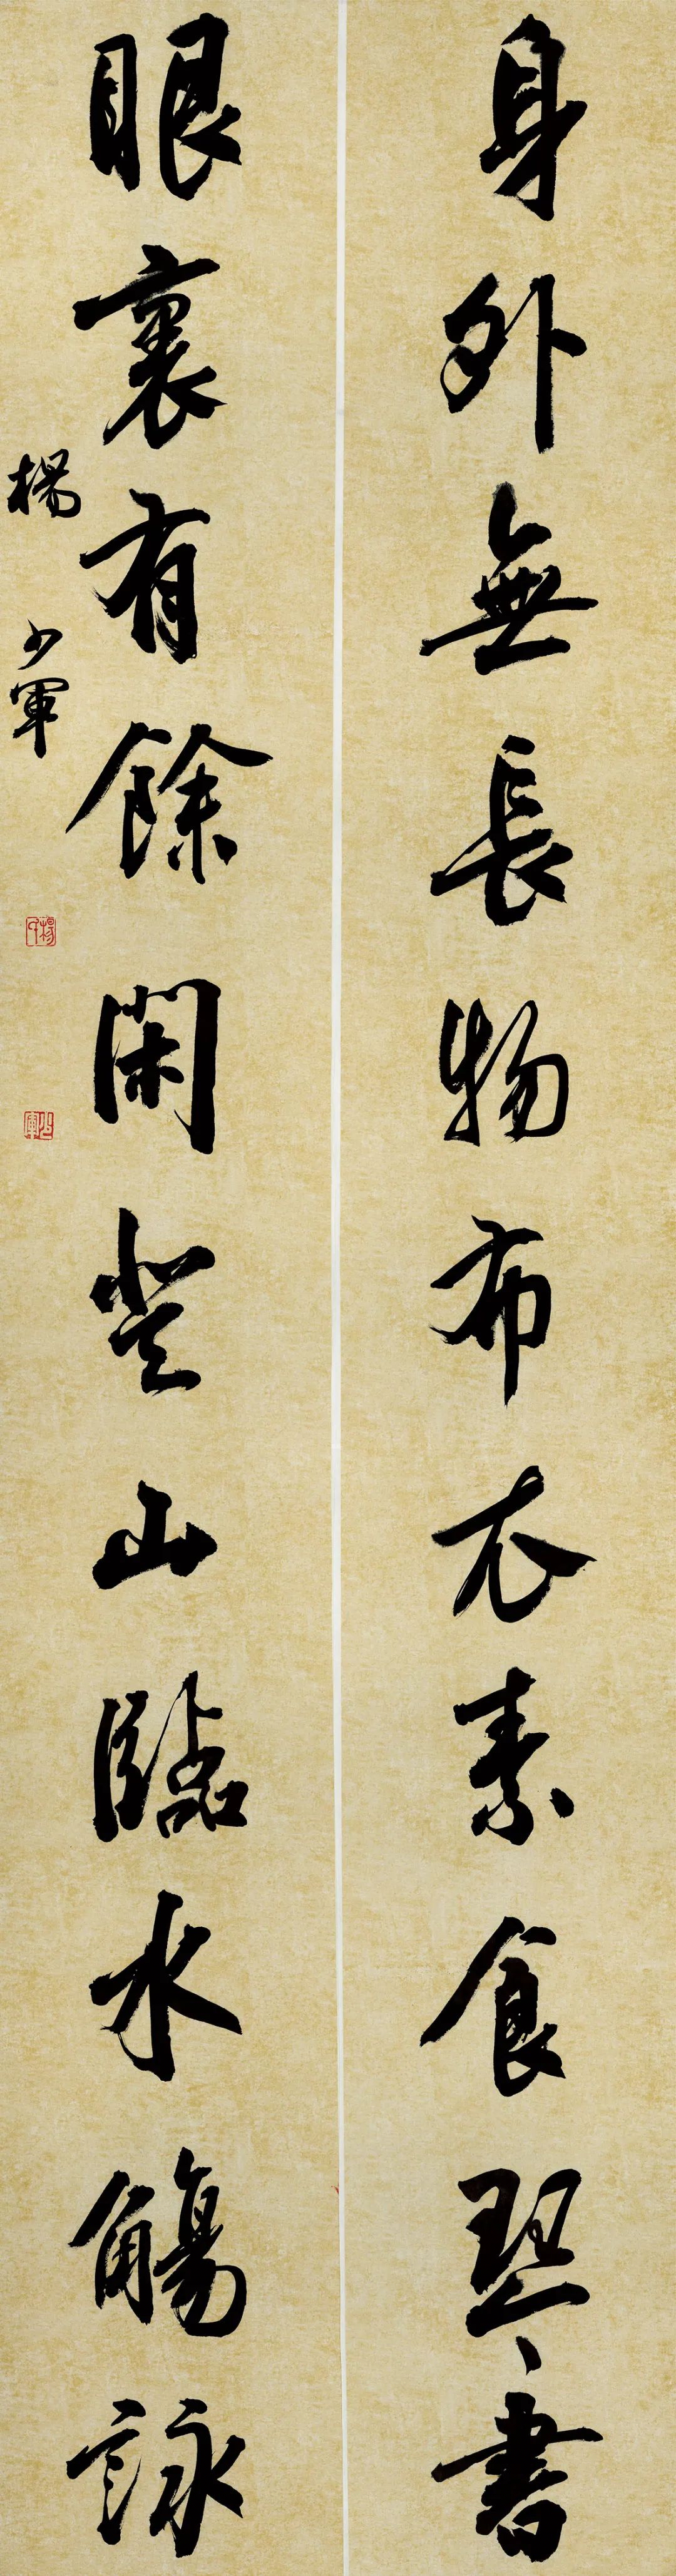 身外無長物布衣素食琴書
眼裏有餘閑登山臨水觴詠
楊少軍
楊氏
少軍